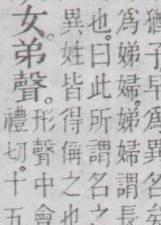 猶子早爲異名
爲娣婦。娣婦謂長
也。曰此所謂名之
異姓皆得偁之也
女。弟聲。形聲中會
禮切。十五